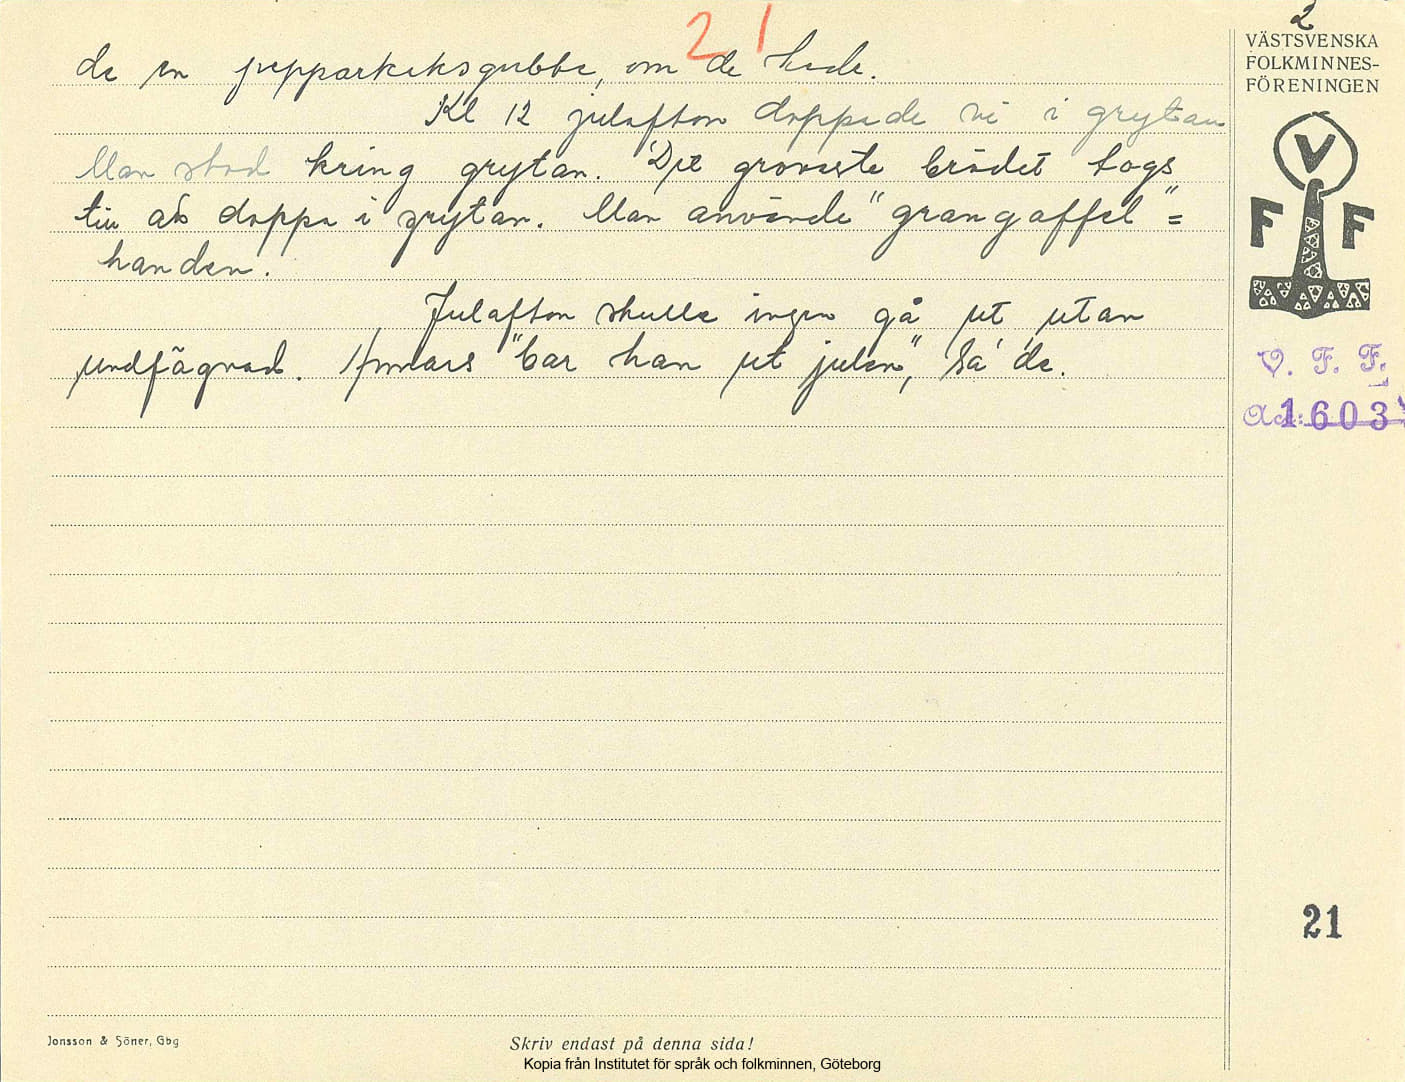 21
2
VÄSTSVENSKA
FOLKMINNES-
FÖRENINGEN
V
F F
V. F. F.
1603
21
de en pepparkaksgubbe, om de hade.
Kl 12 julafton doppade vi i grytan
Man stod kring grytan. Det grovaste brödet togs
till att doppa i grytan. Man använde "grangaffel" =
handen.
Julafton skulle ingen gå ut utan
undfägnad. Annars "bar han ut julen", sa' de.
Jonsson & Söner, Gbg
Skriv endast på denna sida!
Kopia från Institutet för språk och folkminnen, Göteborg